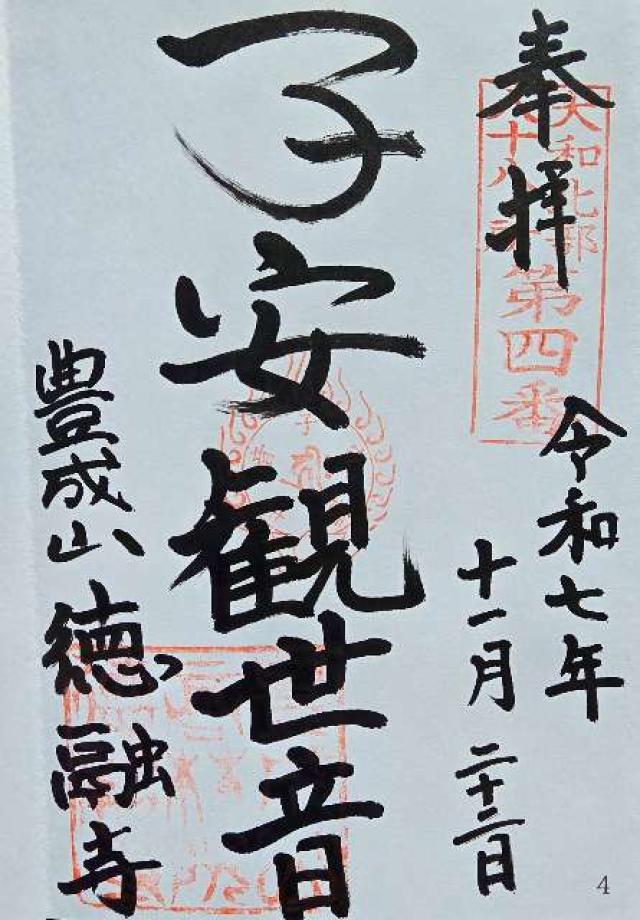 奉拝
大和北部
八十八ヶ所
第四番
令和七年
十一月二十二日
子安観世音
豊成山徳融寺
4